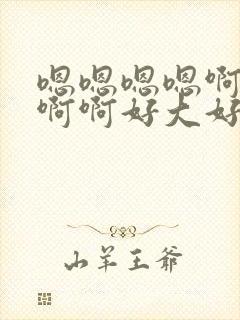 嗯嗯嗯嗯啊
啊啊好大好
山羊王爷